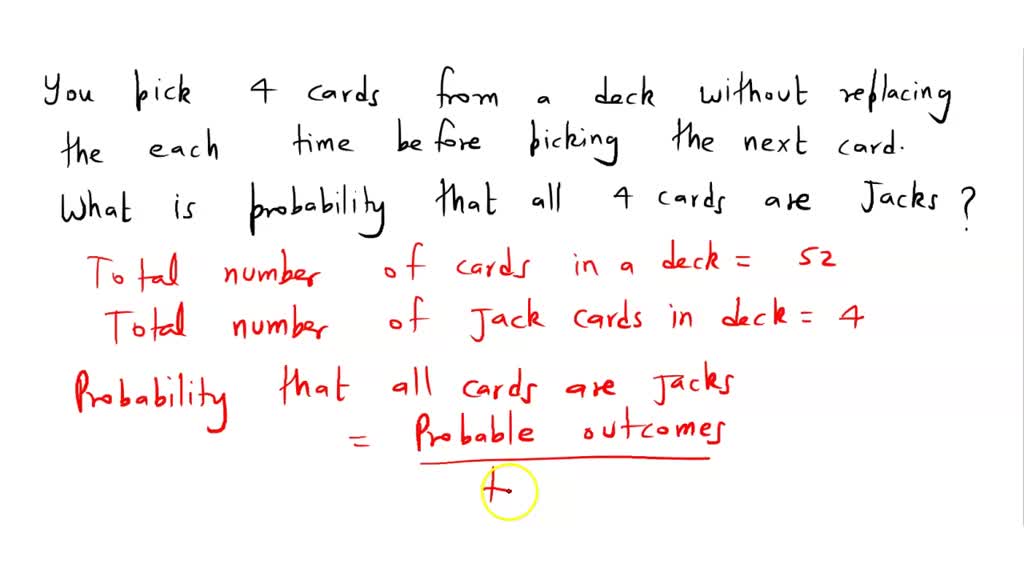 You pick 4 cards from a deck without replacing
the each time before picking the next card.
What is probability that all 4 cards are Jacks ?
Total number of cards in a deck = 52
Total number of Jack cards in deck = 4
Probability that all cards are Jacks
= Probable outcomes
t